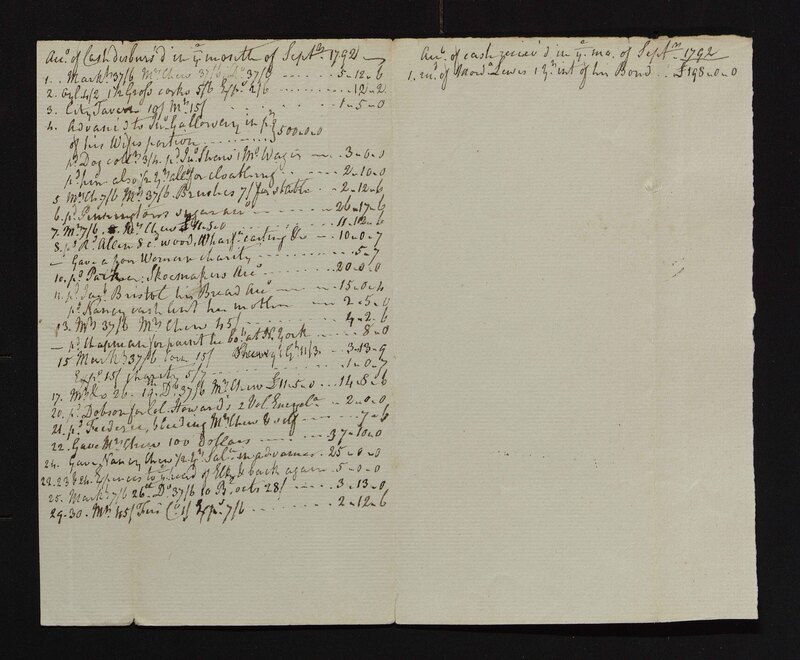 Acc.t of Cash disburs'd in ye month of Sept.r 1792
1. Mark.t 37/6 Mrs Chew 37/6 Do 37/6 5-12-6
2. Oyl 4/2 1 Gross corks 5/6 2/6 12-2
3. City Tavern 10/ Mr 15/ 1-5-0
4. Advanc'd to Jno Galloway in pt
of his Wifes portion 500-0-0
pd Dog coll.r 3/4 pd Jno Shaw Mo Wages 3-0-0
pd him also allce for cloathing 2-10-0
5 Mrs Ch 7/6 Mt 37/6 Brushes 7/ for stable 2-12-6
6. pd Penningtons sugar acct 26-17-6
7. Mt 7/6 Mrs Chew £11-5-0 11-12-6
8. pd Rd Allen 8 cd wood, Wharfe carting &c 10-0-7
— Gave a poor Woman charity 5-7
10. pd Parker Shoemakers Acct 20-0-0
11. pd Bristol her Bread Acct 15-0-4
pd Nancy cash lent her mother 2-5-0
13. Mt 37/6 Mrs Chew 45/ 4-2-6
— pd Chapman for paint bot at N York 8-0
15 Mark.t 37/6 15/ 11/3 3-13-9
15/ charity 5/7 1-0-7
17. 26 19 Do 37/6 Mrs Chew £11-5-0 14-8-6
20. pd Dobson for Col. Howard's 2 Vol. Encycla 2-0-0
21. pd Frederic, bleeding Mrs Chew & self 7-6
22. Gave Mrs Chew 100 Dollars 37-10-0
24. Gave Nancy Chew in advance 25-0-0
22.23 & 24. Expences to ye head of Elk & back again 5-0-0
25. Mark.t 7/6 26th Do 37/6 10 28/ 3-13-0
29-30. Mt 45/ 1/ 7/6 2-12-6
Acct of cash receiv'd in ye mo. of Sept.r 1792
1. of Mord.a Lewis 1 Yrs int of his Bond £198-0-0